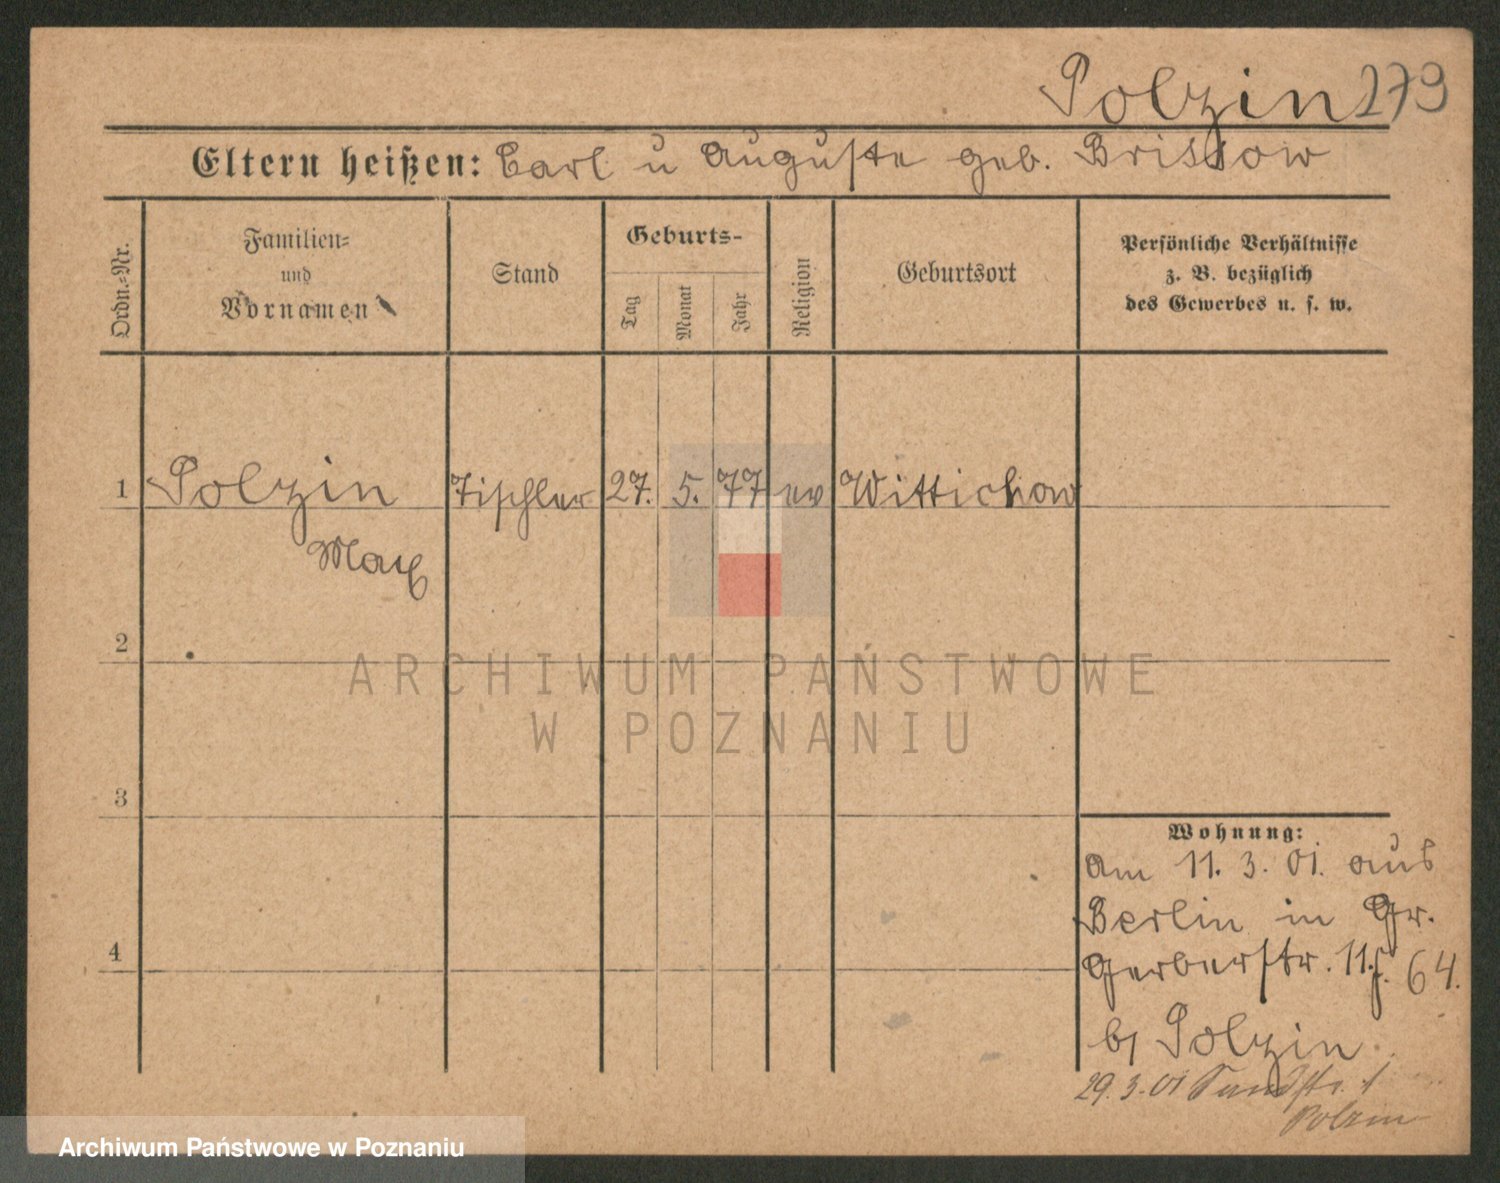 Polzin 279
Eltern heißen: Carl u Auguste geb. Brissow
Ordn.-Nr.
Familien-
und
Vornamen
Stand
Geburts-
Tag
Monat
Jahr
Religion
Geburtsort
Persönliche Verhältnisse
z. B. bezüglich
des Gewerbes u. s. w.
1 Polzin Tischler 27. 5. 77 ev Wittichow
Max
2
ARCHIWUM PAŃSTWOWE
W POZNANIU
3
Wohnung:
am 11. 3. 01. aus
Berlin in Gr.
4
Gerberstr. 11. f. 64.
b/ Polzin
29. 3. 01 Sandstr. 1
Polzin
Archiwum Państwowe w Poznaniu